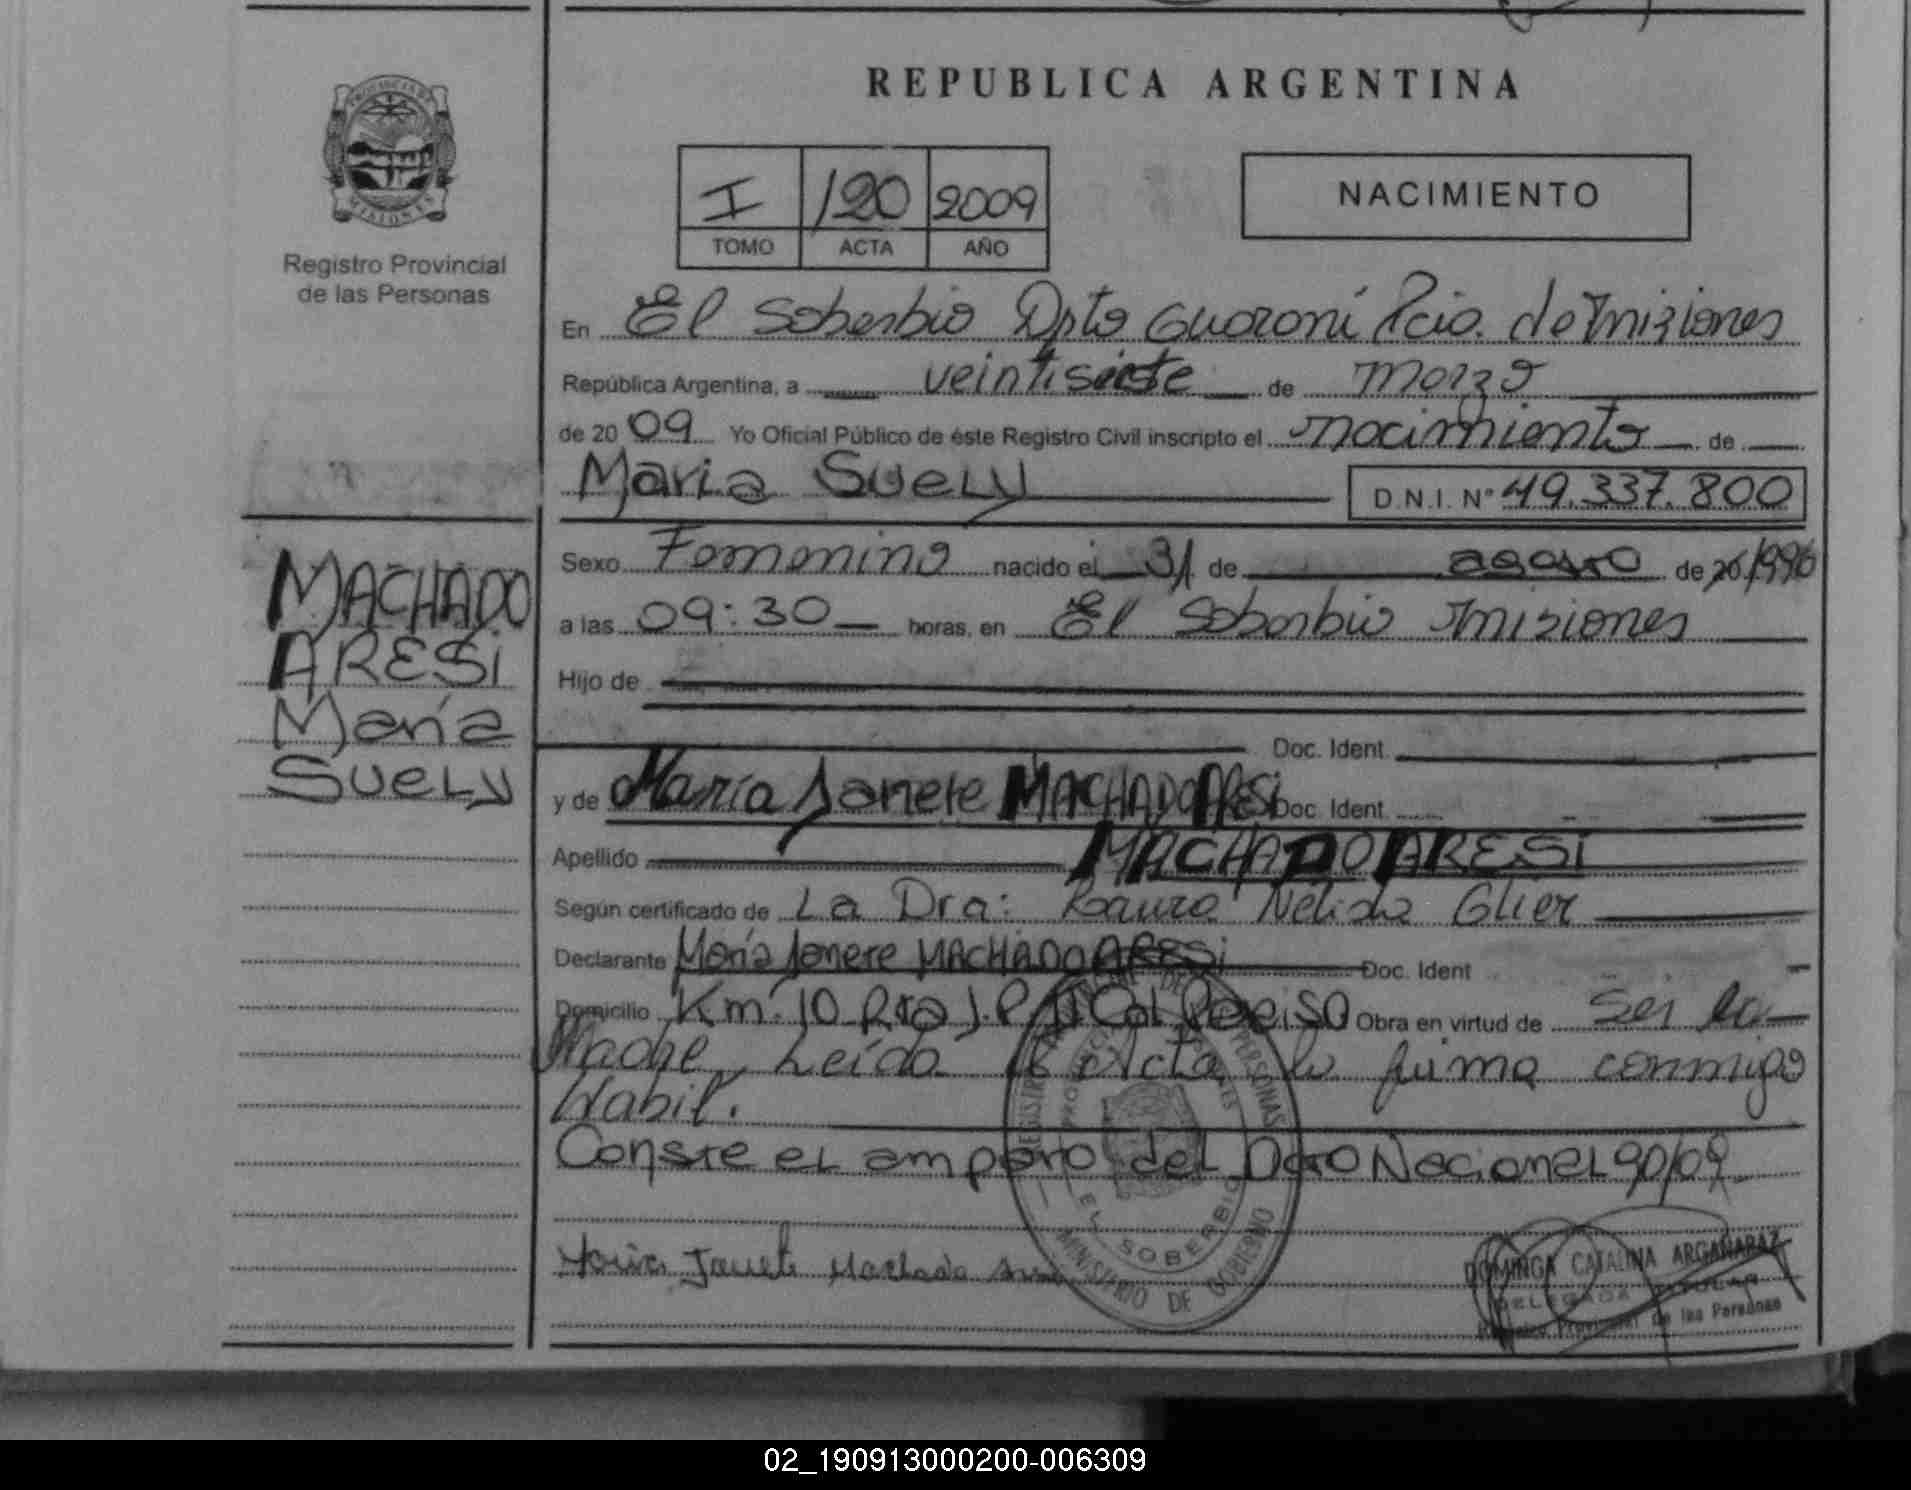 REPUBLICA ARGENTINA
PROVINCIA DE MISIONES
Registro Provincial
de las Personas
I 120 2009
TOMO ACTA AÑO
NACIMIENTO
En El Soberbio Dpto Guaraní Pcia. de Misiones
República Argentina, a veintisiete de Marzo
de 20 09 Yo Oficial Público de éste Registro Civil inscripto el nacimiento de
Maria Suely D.N.I. Nº 49.337.800
MACHADO
ARESi
María
Suely
Sexo Femenino nacido el 31 de agosto de 20 1996
a las 09:30 horas, en El Soberbio Misiones
Hijo de
Doc. Ident.
y de María Janete MACHADO ARESi Doc. Ident.
Apellido MACHADO ARESi
Según certificado de La Dra: Nélida Glier
Declarante María Janete MACHADO ARESi Doc. Ident
Domicilio Km. 10 Rta J.P. Col Paraiso Obra en virtud de Ser la
Madre, Leída el Acta la firma conmigo
Habil.
Conste el amparo del Dcto Nacional 90/09
Maria Janete Machado Aresi
REGISTRO PROVINCIAL DE LAS PERSONAS
PROVINCIA DE MISIONES
EL SOBERBIO
MINISTERIO DE GOBIERNO
DOMINGA CATALINA ARGAÑARAZ
DELEGADA TITULAR
Registro Provincial de las Personas
02_190913000200-006309